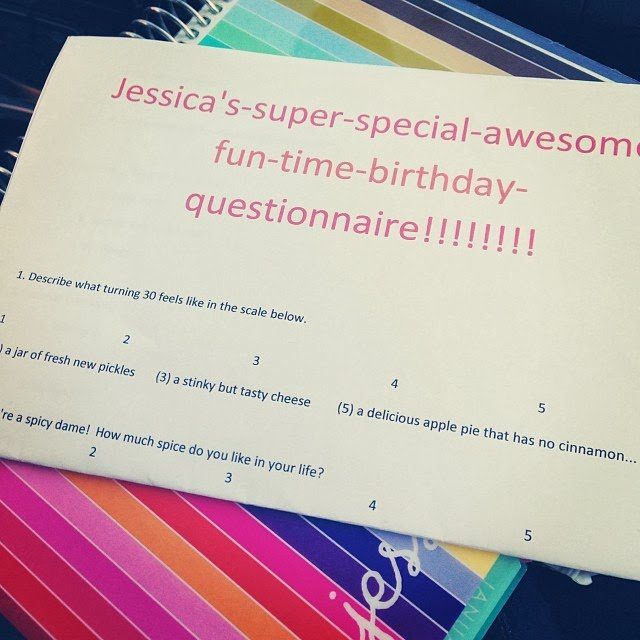 Jessica's-super-special-awesome
fun-time-birthday-
questionnaire!!!!!!!!
1. Describe what turning 30 feels like in the scale below.
1 2 3 4 5
) a jar of fresh new pickles (3) a stinky but tasty cheese (5) a delicious apple pie that has no cinnamon...
're a spicy dame! How much spice do you like in your life?
2 3 4 5
jes